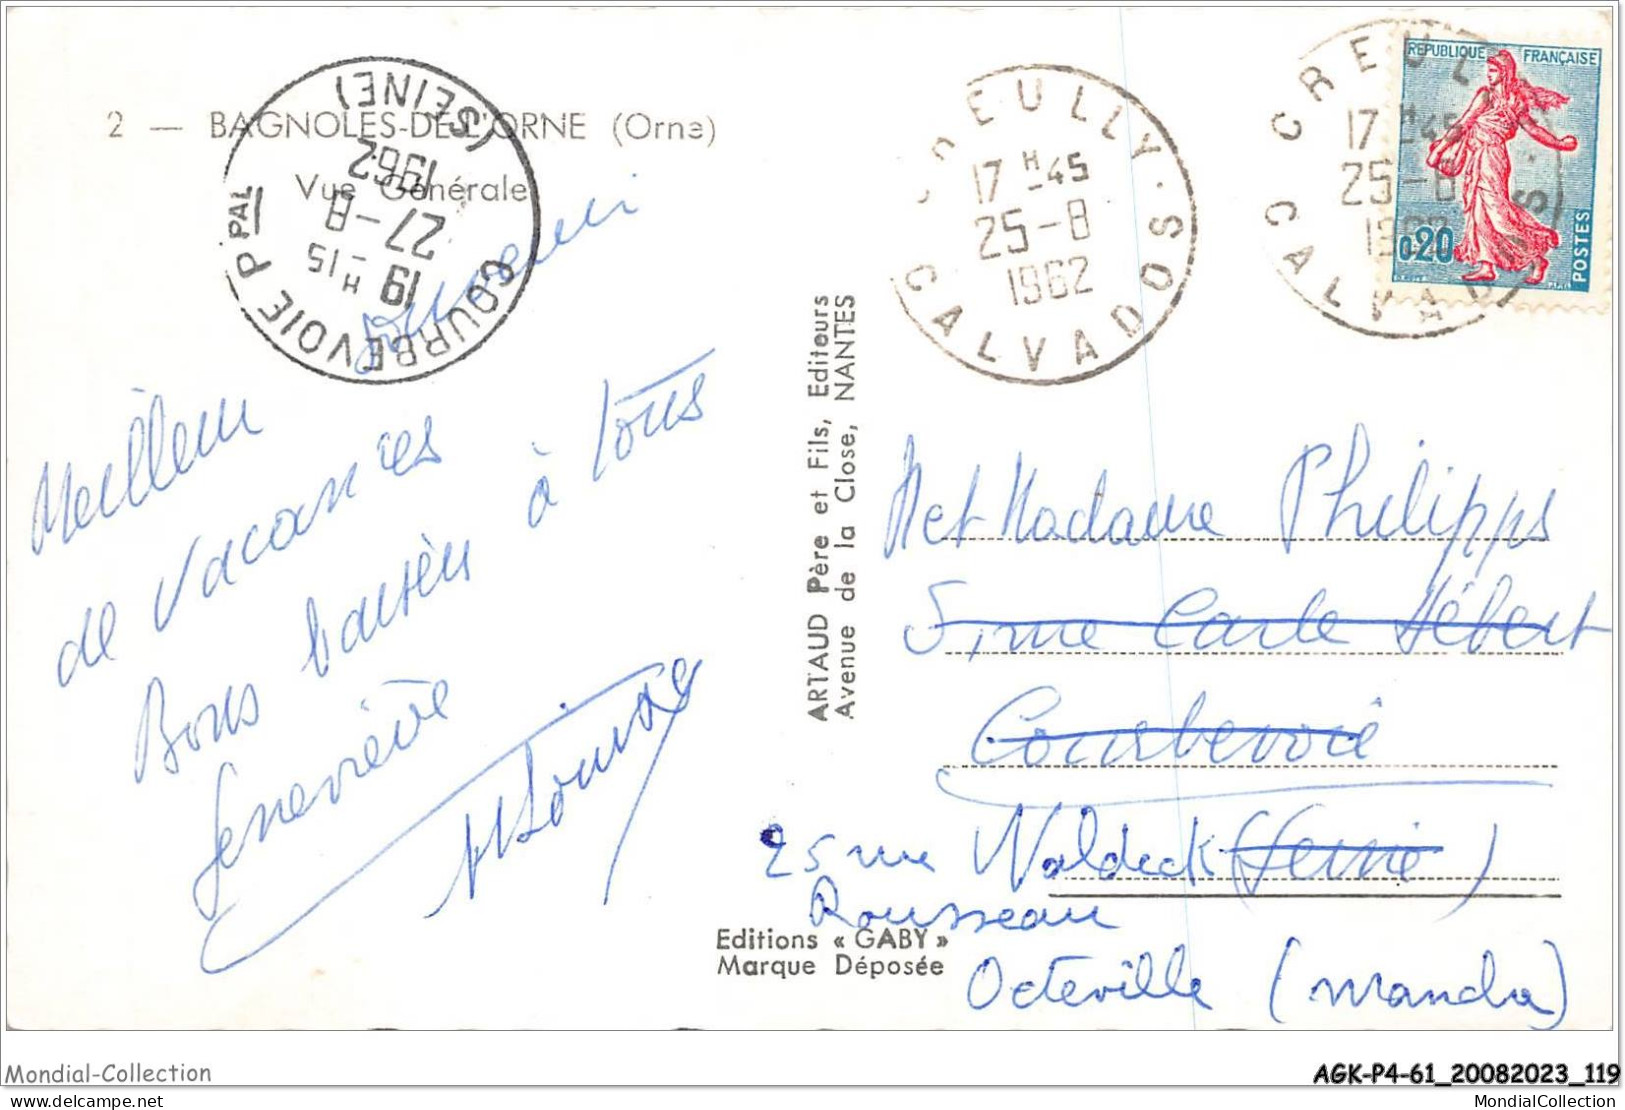 2 — BAGNOLES-DE-L'ORNE (Orne)
Vue Générale
COURBEVOIE PPAL (SEINE)
19 H -15
27 -8
1962
Souvenir
Meilleur
de vacances
Bons baisers à tous
Geneviève
ARTAUD Père et Fils, Editeurs
Avenue de la Close, NANTES
Editions « GABY »
Marque Déposée
CREULLY · CALVADOS
17 H -45
25 -8
1962
CREULLY · CALVADOS
17 H -45
25 -8
1962
REPUBLIQUE FRANÇAISE
0,20
POSTES
M et Madame Philipps
5, rue Carle Hébert
Courbevoie
(Seine)
25 rue Waldeck
Rousseau
Octeville (Manche)
Mondial-Collection
AGK-P4-61_20082023_119
delcampe.net
MondialCollection